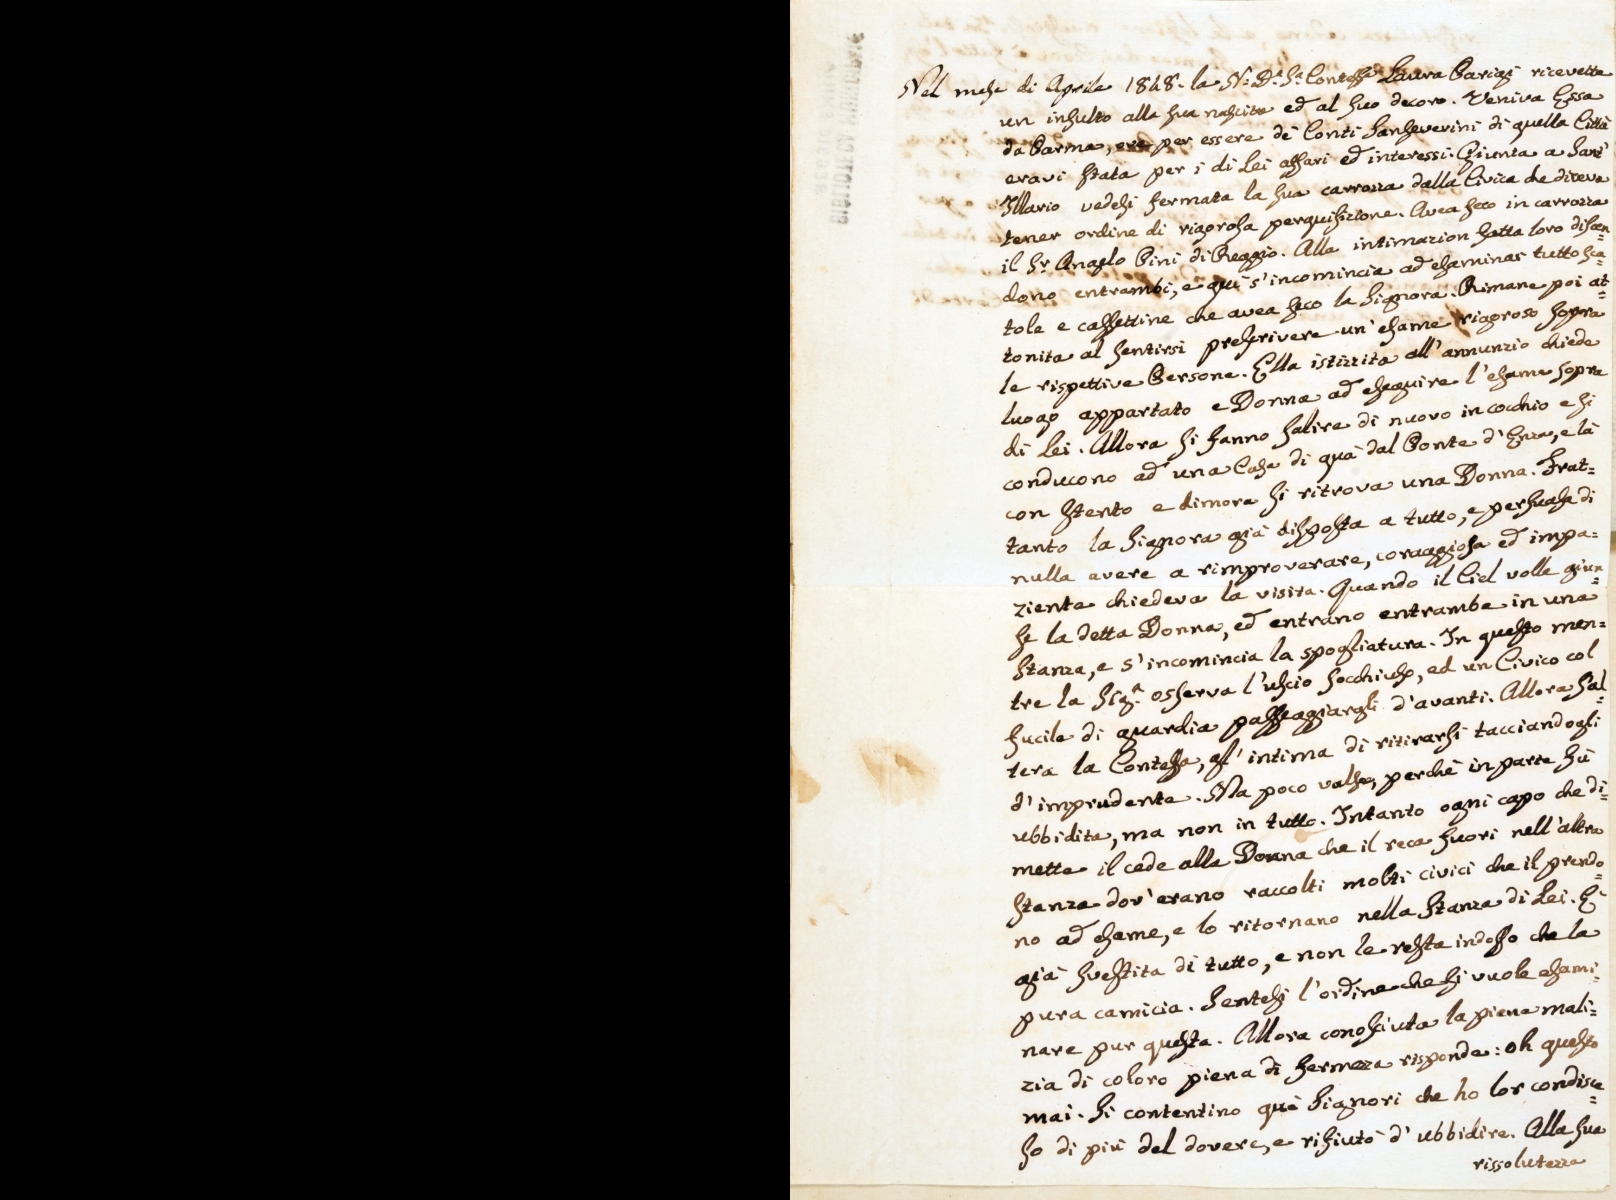 BIBLIOTECA MUNICIPALE
REGGIO EMILIA
Nel mese di Aprile 1848. la N. D. Sa. Contessa Laura Parigi ricevette
un insulto alla sua nascita ed al suo decoro. Veniva Essa
da Parma, ove per essere de' Conti Sanseverini di quella Città
eravi stata per i di Lei affari ed interessi. Giunta a Sant'
Illario vedesi fermata la sua carrozza dalla Civica che diceva
tener ordine di rigorosa perquisizione. Avea seco in carrozza
il Sr. Angelo Pini di Reggio. Alla intimazion fatta loro discen=
dono entrambi, e quì s'incomincia ad esaminar tutto sca=
tole e cassettine che avea seco la Signora. Rimane poi at=
tonita al sentirsi prescrivere un'esame rigoroso sopra
le rispettive Persone. Ella istizzita all'annunzio chiede
luogo appartato e Donna ad eseguire l'esame sopra
di Lei. Allora si fanno salire di nuovo in cocchio e si
conducono ad una Casa di quà dal Ponte d'Enza, e là
con stento e dimora si ritrova una Donna. Frat=
tanto la Signora già disposta a tutto, e persuasa di
nulla avere a rimproverare, coraggiosa ed impa=
ziente chiedeva la visita. Quando il Ciel volle giun=
se la detta Donna, ed entrano entrambe in una
stanza, e s'incomincia la spogliatura. In questo men=
tre la Sig.a osserva l'uscio socchiuso, ed un Civico col
fucile di guardia passeggiargli d'avanti. Allora sal=
tera la Contessa, gl'intima di ritirarsi tacciandogli
d'imprudente. Ma poco valse, perchè in parte fù
ubbidita, ma non in tutto. Intanto ogni capo che di=
mette il cede alla Donna che il reca fuori nell'altra
stanza dov'erano raccolti molti civici che il prendo=
no ad esame, e lo ritornano nella stanza di Lei. È
già svestita di tutto, e non le resta indosso che la
pura camicia. Sentesi l'ordine che si vuole esami=
nare pur questa. Allora conosciuta la piena mali=
zia di coloro piena di fermezza risponde: oh questo
mai. Si contentino què Signori che ho lor condisce=
so di più del dovere, e rifiutò d'ubbidire. Alla sua
rissolutezza